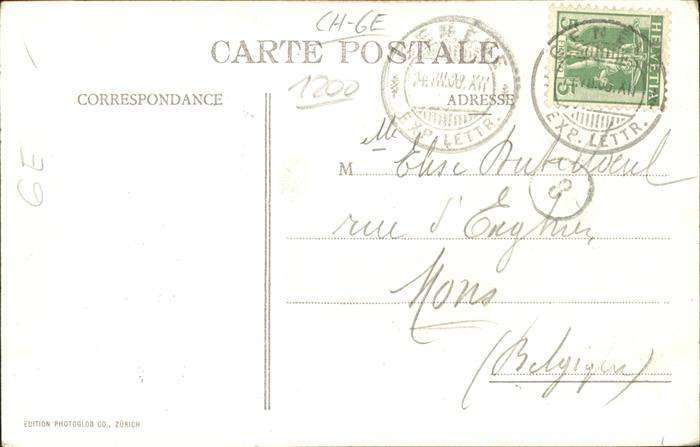 CH-GE
CARTE POSTALE
1200
CORRESPONDANCE
ADRESSE
GENÈVE
EXP. LETTR.
GENÈVE
EXP. LETTR.
HELVETIA
5
5
Mlle
M Elise
rue d'Enghien
Mons
(Belgique)
8
GE
EDITION PHOTOGLOB CO., ZÜRICH